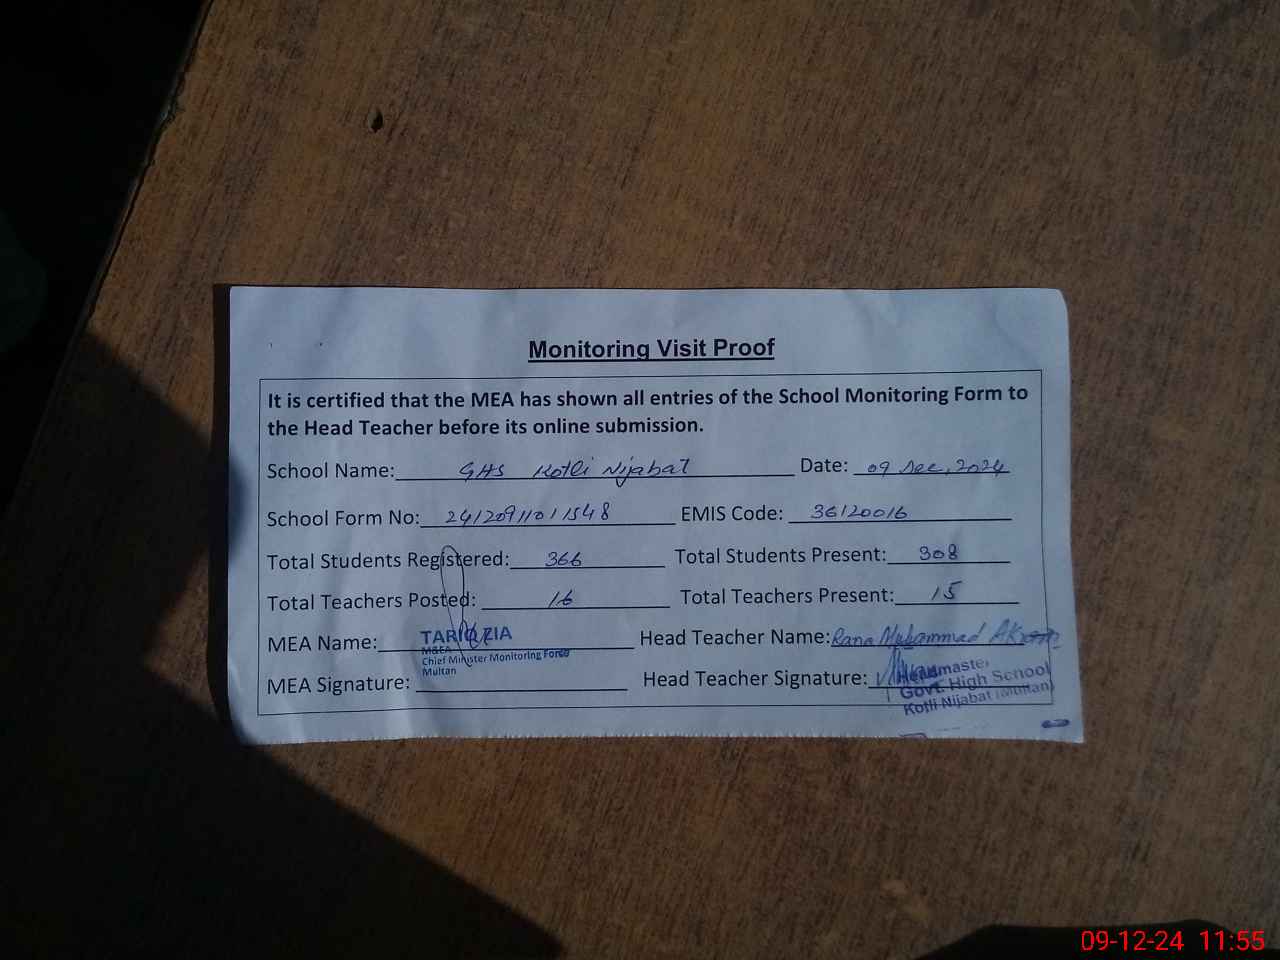 Monitoring Visit Proof
It is certified that the MEA has shown all entries of the School Monitoring Form to
the Head Teacher before its online submission.
School Name: GHS Kotli Nijabat Date: 09 Dec, 2024
School Form No: 24120911011548 EMIS Code: 36120016
Total Students Registered: 366 Total Students Present: 308
Total Teachers Posted: 16 Total Teachers Present: 15
MEA Name: TARIQ ZIA Head Teacher Name: Rana Muhammad Akram
M&EA
Chief Minister Monitoring Force
Multan
MEA Signature: Head Teacher Signature:
Headmaster
Govt. High School
Kotli Nijabat (Multan)
09-12-24 11:55